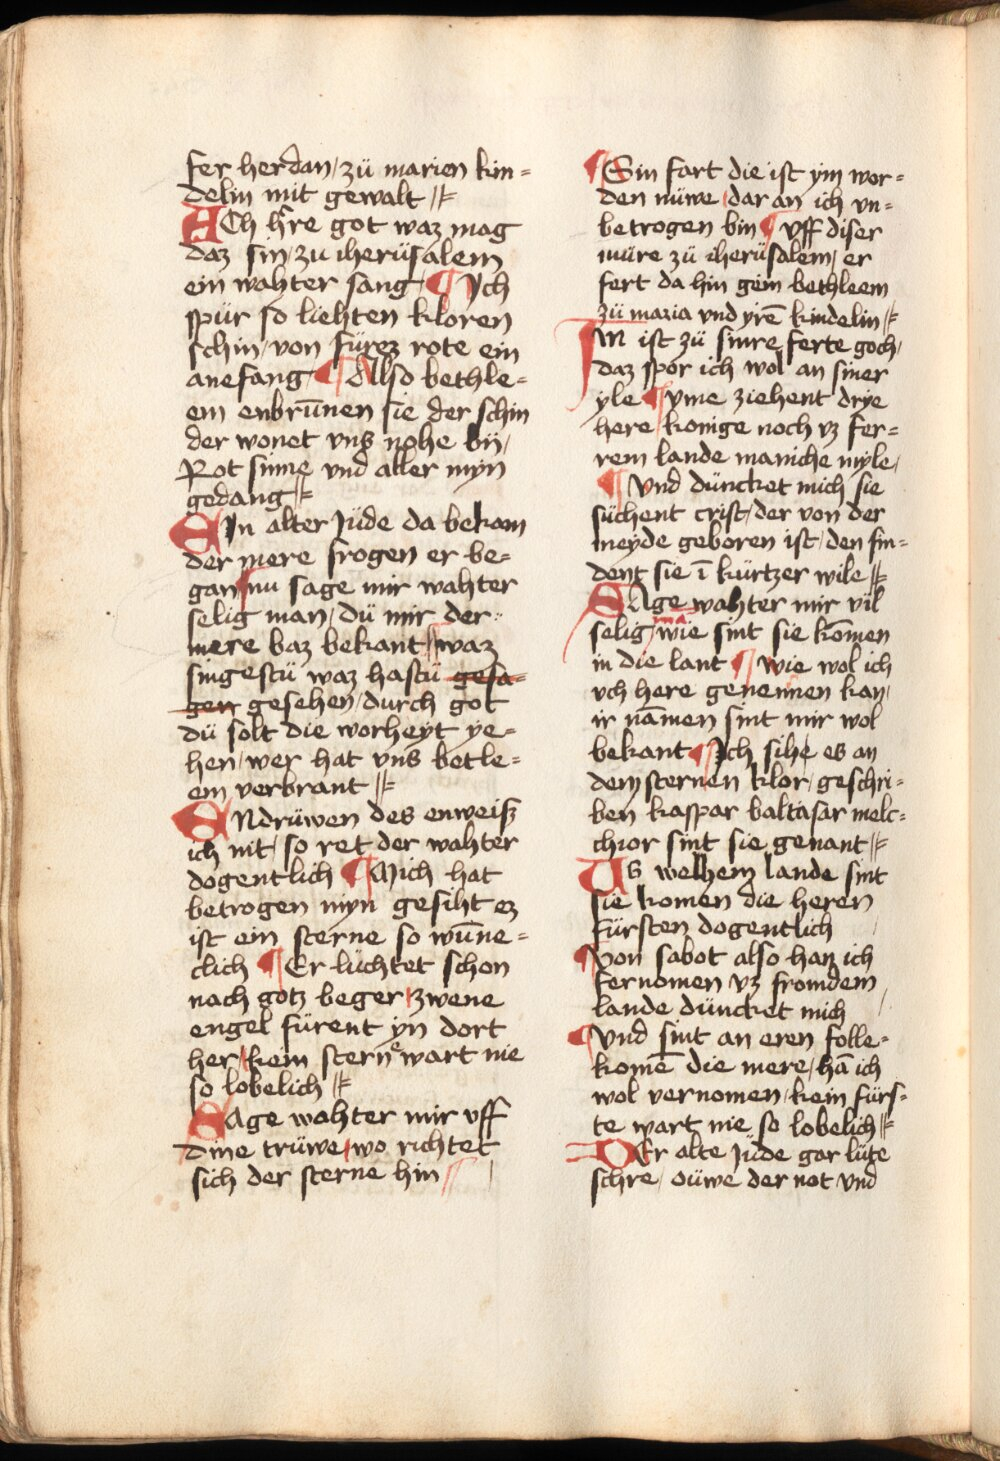 fer herdan / zü marien kin=
delin mit gewalt //
ACh hr̄e got waz mag
daz sin / zu iherüsalem
ein wahter sang / ¶ Ich
spür so liehten kloren
schin / von fürez rote ein
anefang ¶ Also bethle=
em enbrūnen sie der schin
der wonet vns nohe bij /
Rot sinne vnd aller myn
gedang //
EIn alter Jüde da bekam
der mere frogen er be=
gan ¶ nu sage mir wahter
selig man / dü mir der
mere baz bekant ¶ waz
singestü waz hastü gesa=
gen gesehen / durch got
dü solt die worheyt ye=
hen / wer hat vns betle=
em verbrant //
ENdrüwen des enweisz
ich nit / so ret der wahter
dogentlich ¶ Mich hat
betrogen myn gesiht ez
ist ein sterne so wūne=
clich ¶ Er lüchtet schon
nach gotz beger / zwene
engel fürent yn dort
her / kein sterne wart nie
so lobelich //
SAge wahter mir vff
dine trüwe / wo richtet
sich der sterne hin //
¶ Sin fart die ist ym wor=
den nüwe / dar an ich vn=
betrogen bin ¶ vff diser
müre zü iherüsalem / er
fert da hin gein bethleem
zü maria vnd yrē kindelin //
IM ist zü sinre ferte goch /
daz spor ich wol an siner
yle ¶ yme ziehent drye
here / konige noch vz fer=
rem lande maniche myle /
¶ Vnd düncket mich sie
süchent crist / der von der
meyde geboren ist / den fin=
dent sie ī kürtzer wile //
SAge wahter mir vil
selig mā / wie sint sie kōmen
in die lant ¶ wie wol ich
vch here genennen kan /
ir nāmen sint mir wol
bekant ¶ Ich sihe es an
dem sternen klor / geschri=
ben kaspar baltasar melc=
chior sint sie genant //
Us welhem lande sint
sie komen die heren
fürsten dogentlich
¶ Von sabot also han ich
fernomen vz fromdem
lande düncket mich
¶ Vnd sint an eren folle=
komē die mere / hā ich
wol vernomen / kein fürs=
te wart nie so lobelich //
DEr alte Jüde gar lüte
schre / oüwe der not vnd